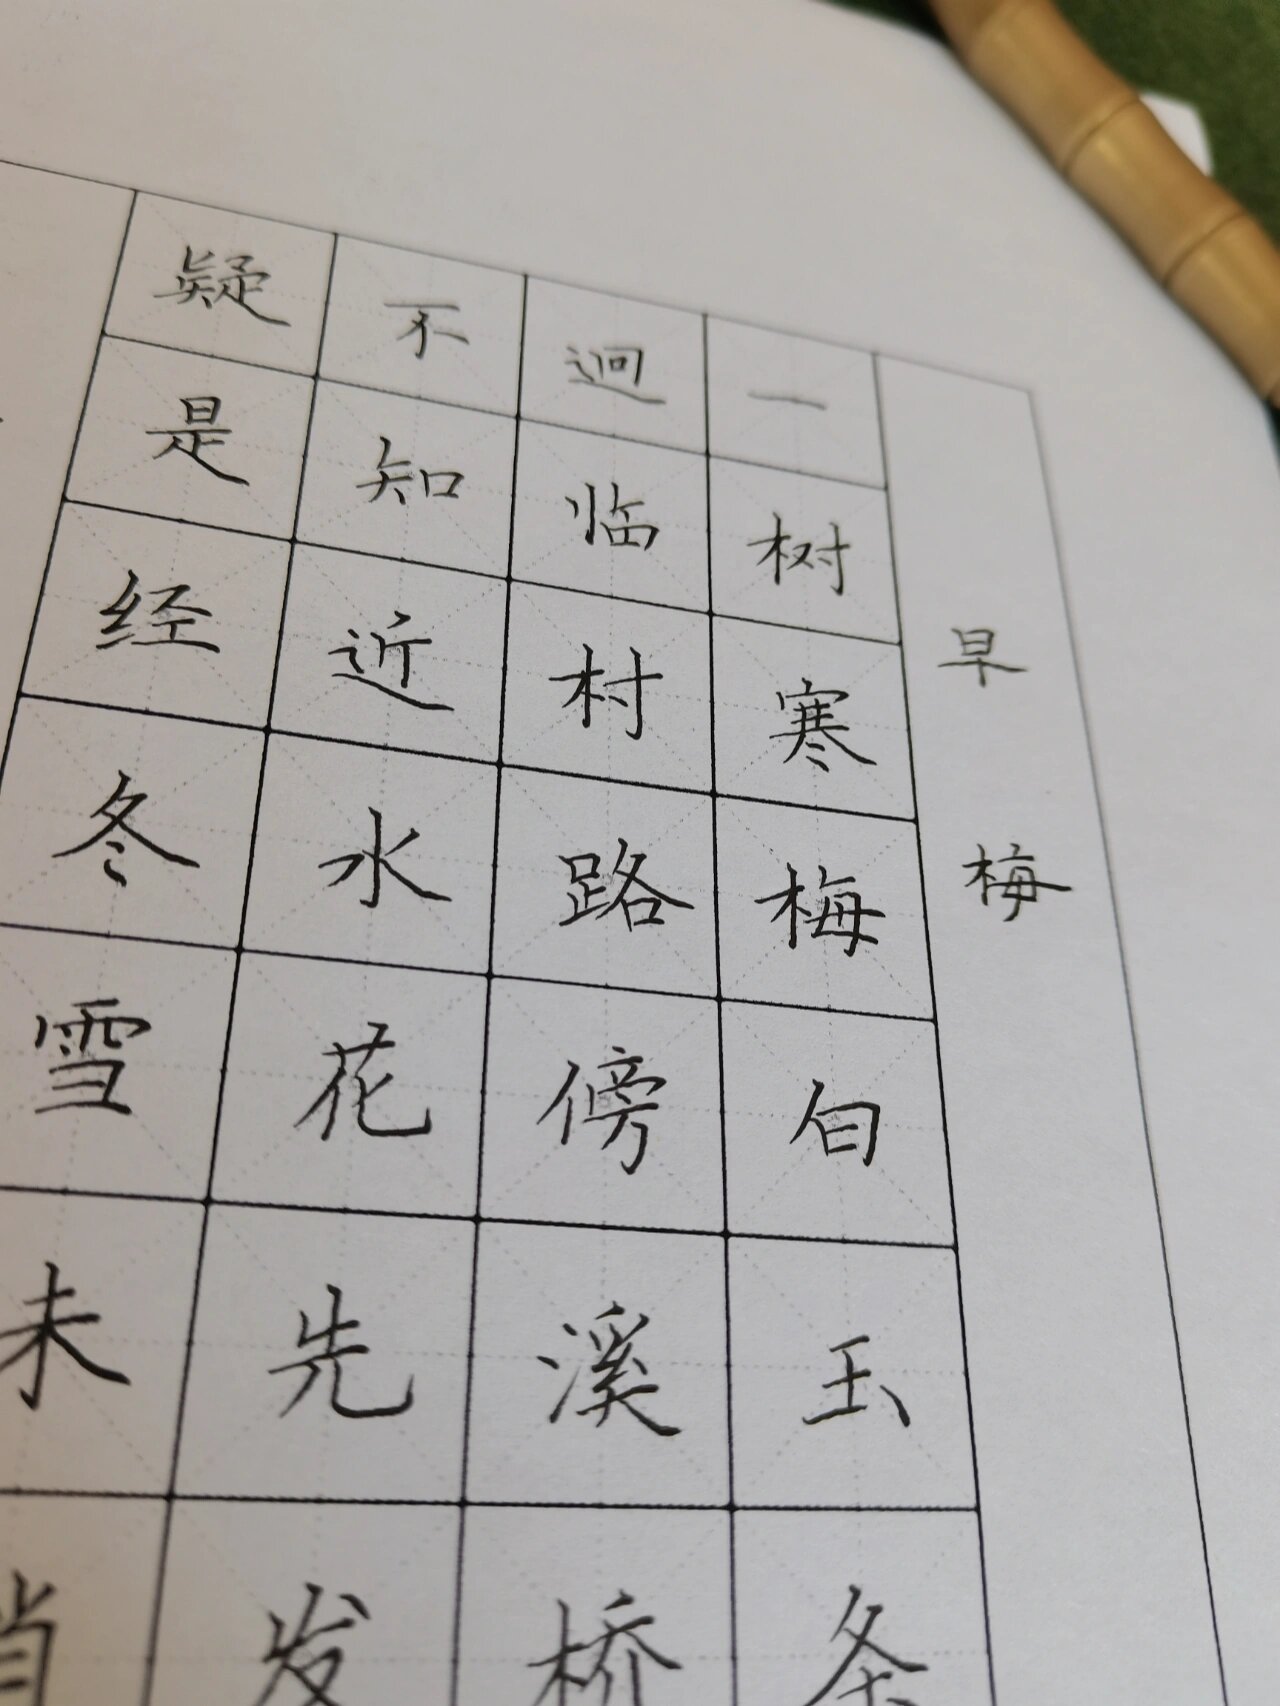 早梅
一树寒梅白玉条
迥临村路傍溪桥
不知近水花先发
疑是经冬雪未